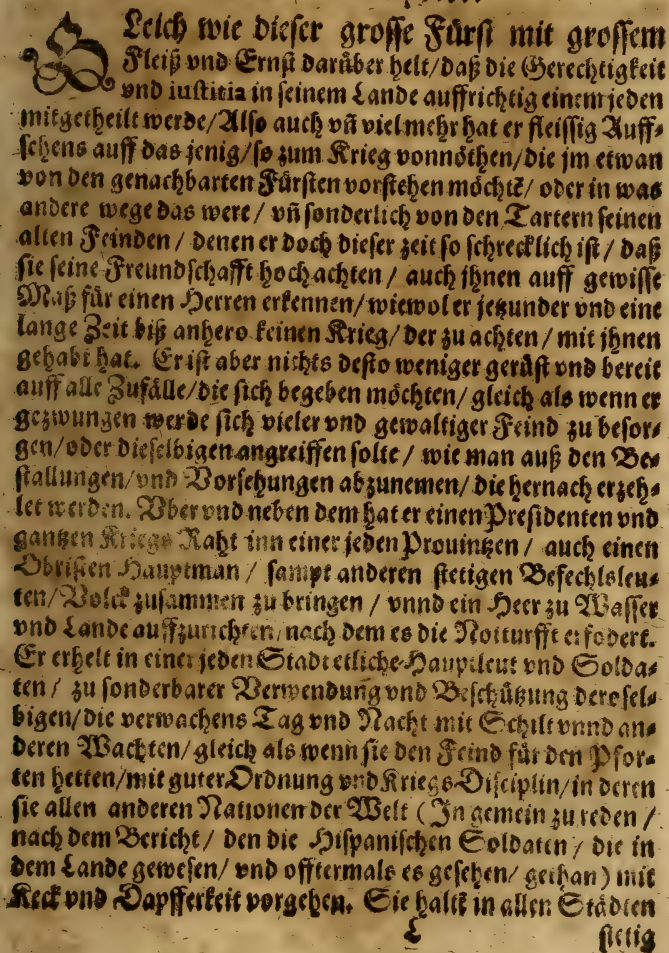 GLeich wie dieser grosse Fürst mit grossem
Fleiß vnd Ernst darüber helt/daß die Gerechtigkeit
vnd iustitia in seinem Lande auffrichtig einem jeden
mitgetheilt werde/Also auch vñ viel mehr hat er fleissig Auff-
sehens auff das jenig/so zum Krieg vonnöthen/die jm etwan
von den genachbarten Fürsten vorstehen möchtē/ oder in was
andere wege das were/ vñ sonderlich von den Tartern seinen
alten Feinden/ denen er doch dieser zeit so schrecklich ist/ daß
sie seine Freundschafft hoch achten/ auch ihnen auff gewisse
Maß für einen Herren erkennen/wiewol er jetzunder vnd eine
lange Zeit biß anhero keinen Krieg/der zu achten/mit ihnen
gehabt hat. Er ist aber nichts desto weniger gerüst vnd bereit
auff alle Zufälle/die sich begeben möchten/gleich als wenn er
gezwungen werde sich vieler vnd gewaltiger Feind zu besor-
gen/oder dieselbigen angreiffen solte/ wie man auß den Be-
stallungen/vnd Vorsehungen abzunemen/die hernach erzeh-
let werden. Vber vnd neben dem hat er einen Presidenten vnd
gantzen Kriegs Raht inn einer jeden Prouintzen/ auch einen
Obristen Hauptman/ sampt anderen stetigen Befechlsleu-
ten/Volck zusammen zu bringen/ vnnd ein Heer zu Wasser
vnd Lande auffzurichten/nach dem es die Notturfft erfodert.
Er erhelt in einer jeden Stadt etliche Hauptleut vnd Solda-
ten/ zu sonderbarer Verwendung vnd Beschützung derosel-
bigen/die verwachens Tag vnd Nacht mit Schilt vnnd an-
deren Wachten/gleich als wenn sie den Feind für den Pfor-
ten hetten/mit guter Ordnung vnd Kriegs Disciplin/in deren
sie allen anderen Nationen der Welt (In gemein zu reden/
nach dem Bericht/ den die Hispanischen Soldaten/ die in
dem Lande gewesen/ vnd offtermals es gesehen/ gethan) mit
Keck vnd Dapfferkeit vorgehen. Sie haltē in allen Städten
L stetig